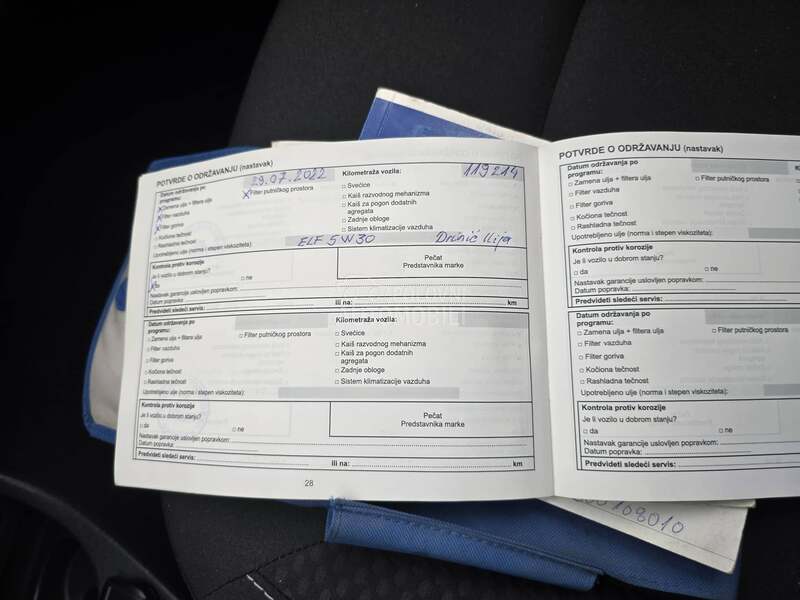 POTVRDE O ODRŽAVANJU (nastavak)
Datum održavanja po programu: 29.07.2022 Kilometraža vozila: 119214
x Zamena ulja + filtera ulja x Filter putničkog prostora □ Svećice
x Filter vazduha □ Kaiš razvodnog mehanizma
x Filter goriva □ Kaiš za pogon dodatnih agregata
□ Kočiona tečnost □ Zadnje obloge
□ Rashladna tečnost □ Sistem klimatizacije vazduha
Upotrebljeno ulje (norma i stepen viskoziteta): ELF 5W30 Drinić Ilija
Kontrola protiv korozije
Je li vozilo u dobrom stanju?
x da □ ne
Pečat
Predstavnika marke
Nastavak garancije uslovljen popravkom:
Datum popravka:
Predvideti sledeći servis: ili na: km
Datum održavanja po programu: Kilometraža vozila:
□ Zamena ulja + filtera ulja □ Filter putničkog prostora □ Svećice
□ Filter vazduha □ Kaiš razvodnog mehanizma
□ Filter goriva □ Kaiš za pogon dodatnih agregata
□ Kočiona tečnost □ Zadnje obloge
□ Rashladna tečnost □ Sistem klimatizacije vazduha
Upotrebljeno ulje (norma i stepen viskoziteta):
Kontrola protiv korozije
Je li vozilo u dobrom stanju?
□ da □ ne
Pečat
Predstavnika marke
Nastavak garancije uslovljen popravkom:
Datum popravka:
Predvideti sledeći servis: ili na: km
28
POTVRDE O ODRŽAVANJU (nastavak)
Datum održavanja po programu:
□ Zamena ulja + filtera ulja □ Filter putničkog prostora
□ Filter vazduha
□ Filter goriva
□ Kočiona tečnost
□ Rashladna tečnost
Upotrebljeno ulje (norma i stepen viskoziteta):
Kontrola protiv korozije
Je li vozilo u dobrom stanju?
□ da □ ne
Nastavak garancije uslovljen popravkom:
Datum popravka:
Predvideti sledeći servis:
Datum održavanja po programu:
□ Zamena ulja + filtera ulja □ Filter putničkog prostora
□ Filter vazduha
□ Filter goriva
□ Kočiona tečnost
□ Rashladna tečnost
Upotrebljeno ulje (norma i stepen viskoziteta):
Kontrola protiv korozije
Je li vozilo u dobrom stanju?
□ da □ ne
Nastavak garancije uslovljen popravkom:
Datum popravka:
Predvideti sledeći servis: